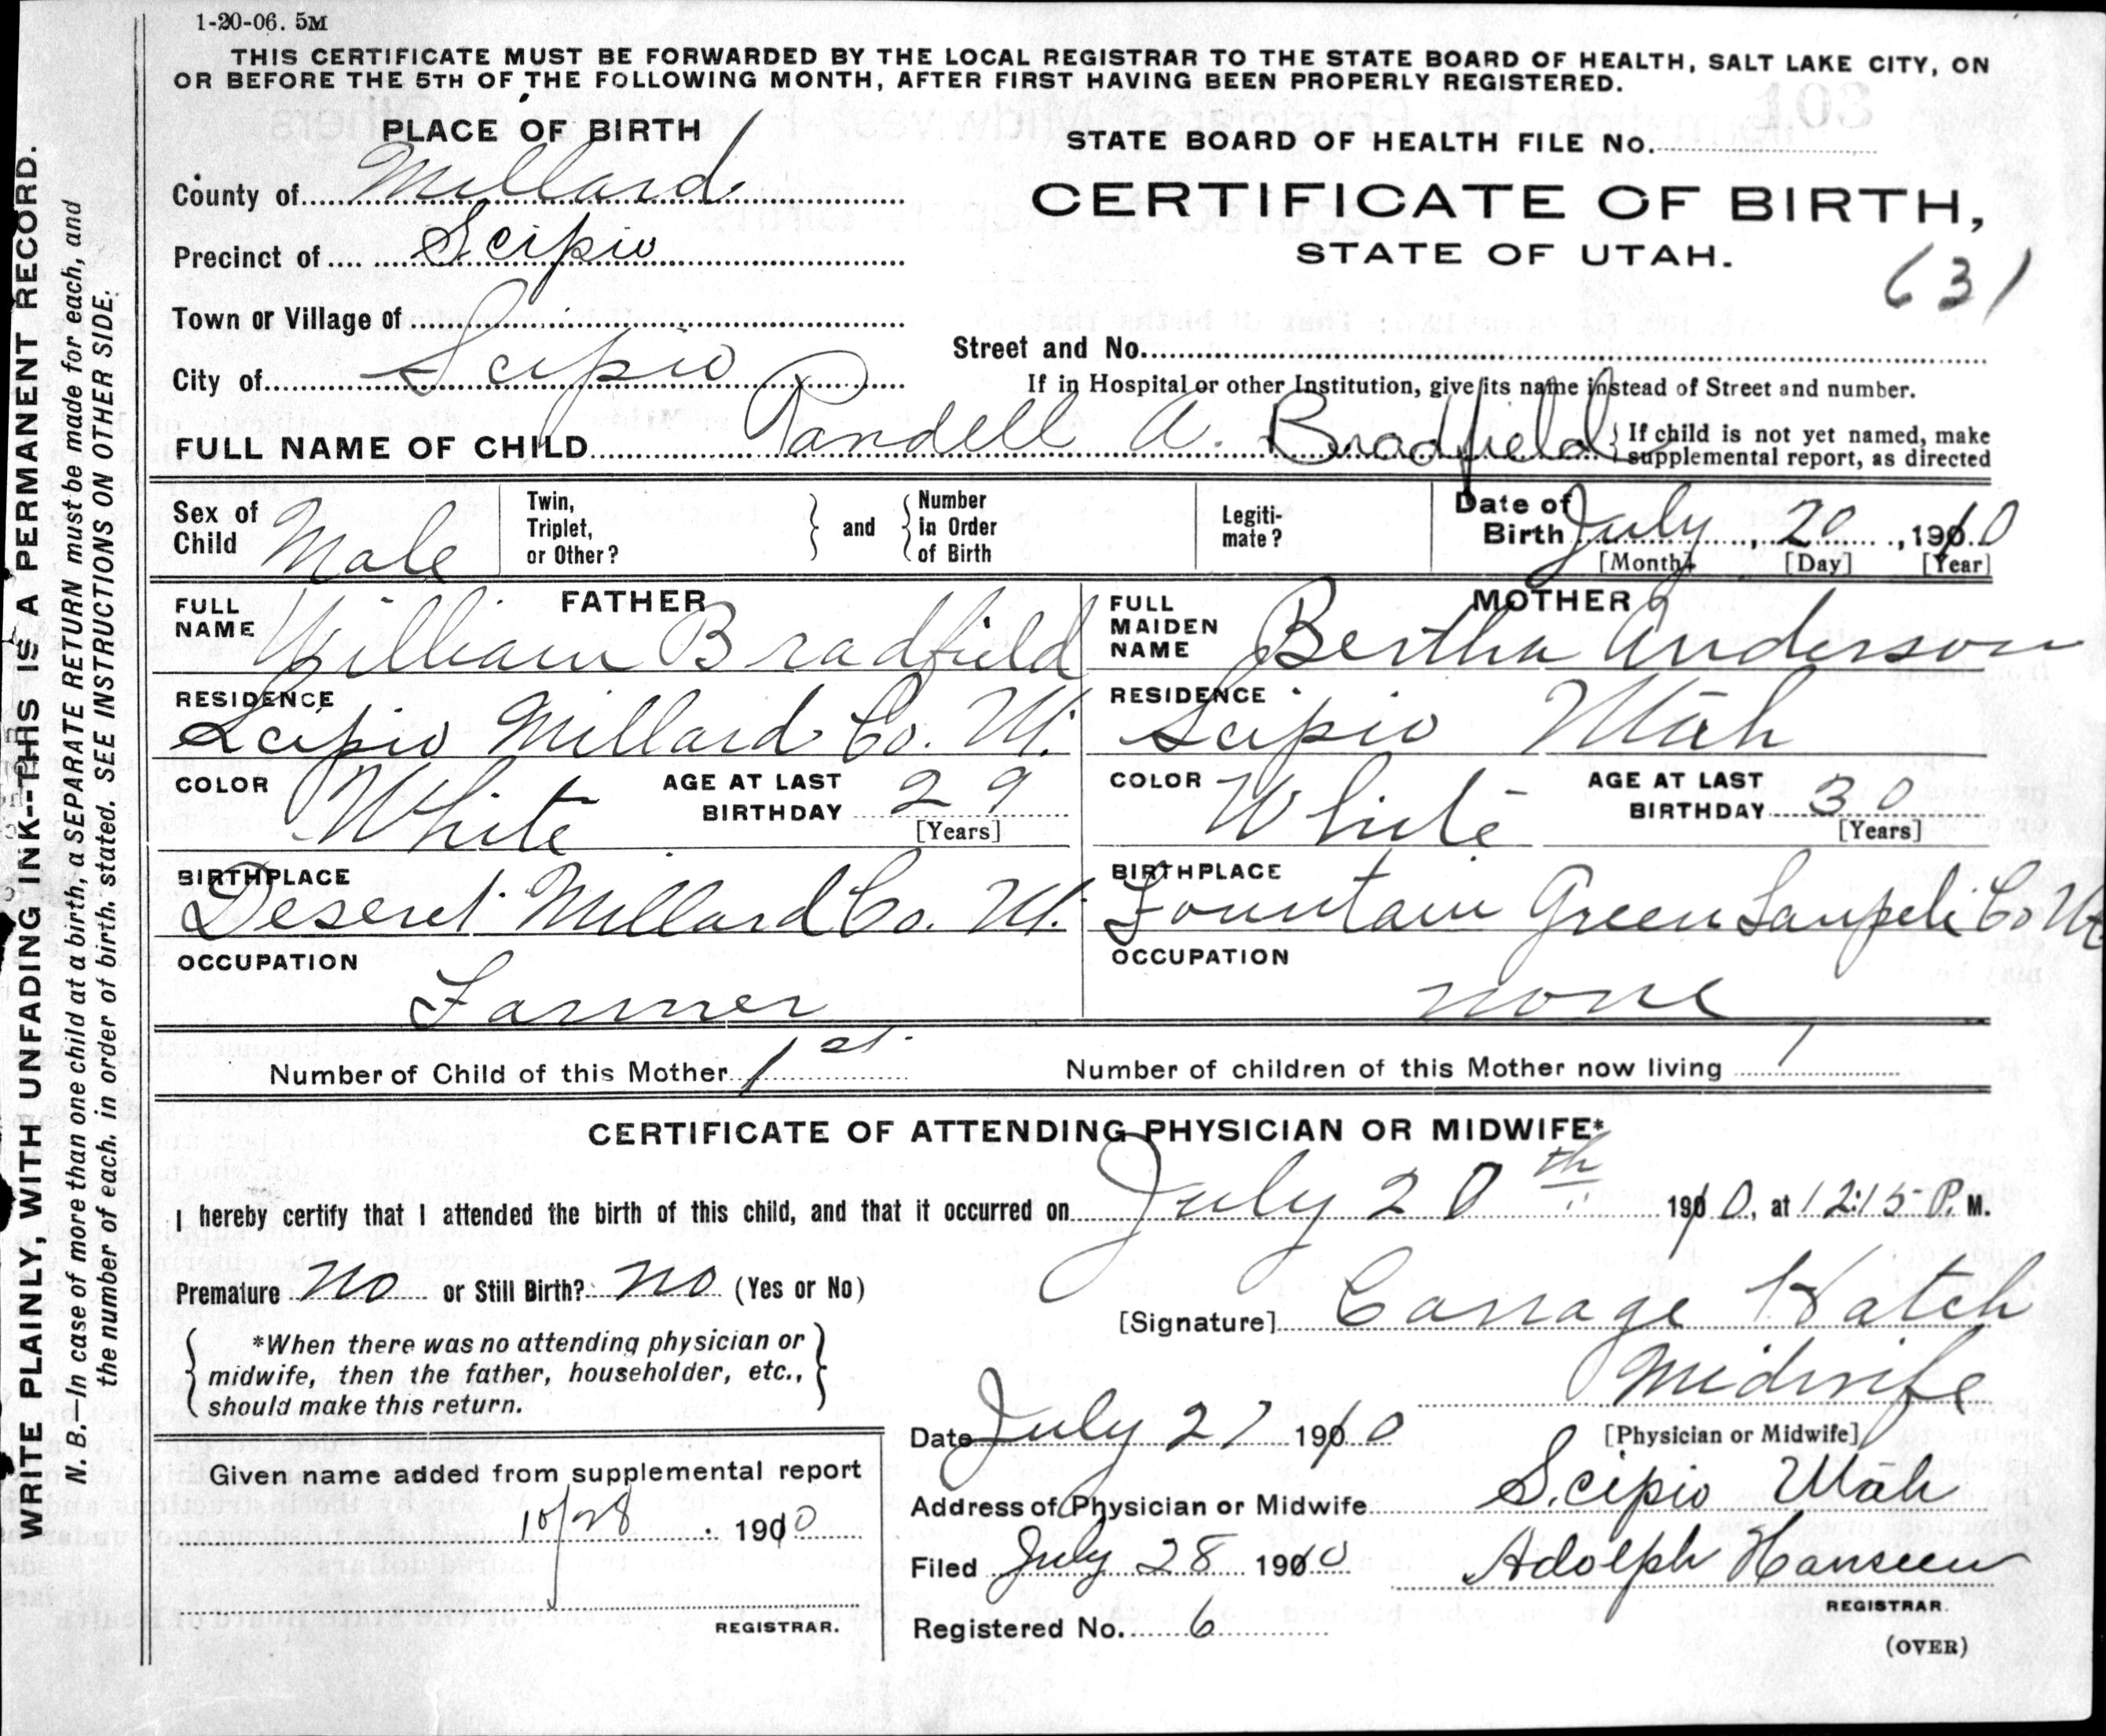 1-20-06. 5M
THIS CERTIFICATE MUST BE FORWARDED BY THE LOCAL REGISTRAR TO THE STATE BOARD OF HEALTH, SALT LAKE CITY, ON
OR BEFORE THE 5TH OF THE FOLLOWING MONTH, AFTER FIRST HAVING BEEN PROPERLY REGISTERED.
WRITE PLAINLY, WITH UNFADING INK--THIS IS A PERMANENT RECORD.
N. B.—In case of more than one child at a birth, a SEPARATE RETURN must be made for each, and
the number of each, in order of birth, stated. SEE INSTRUCTIONS ON OTHER SIDE.
PLACE OF BIRTH
County of Millard
Precinct of Scipio
Town or Village of
City of Scipio
103
STATE BOARD OF HEALTH FILE No.
CERTIFICATE OF BIRTH,
STATE OF UTAH.
631
Street and No.
If in Hospital or other Institution, give its name instead of Street and number.
FULL NAME OF CHILD Randell A. Bradfield { If child is not yet named, make
supplemental report, as directed
Sex of Child Male
Twin, Triplet, or Other? } and { Number in Order of Birth
Legiti-mate?
Date of Birth July, 20, 1910
[Month] [Day] [Year]
FATHER
FULL NAME William Bradfield
RESIDENCE
Scipio Millard Co. Ut.
COLOR White AGE AT LAST BIRTHDAY 29 [Years]
BIRTHPLACE
Deseret Millard Co. Ut.
OCCUPATION
Farmer
MOTHER
FULL MAIDEN NAME Bertha Anderson
RESIDENCE
Scipio Utah
COLOR White AGE AT LAST BIRTHDAY 30 [Years]
BIRTHPLACE
Fountain Green Sanpete Co Ut
OCCUPATION
none
Number of Child of this Mother 1st. Number of children of this Mother now living 1
CERTIFICATE OF ATTENDING PHYSICIAN OR MIDWIFE*
I hereby certify that I attended the birth of this child, and that it occurred on July 20th 1910, at 12:15 P. M.
Premature No or Still Birth? No (Yes or No)
{ *When there was no attending physician or
midwife, then the father, householder, etc.,
should make this return. }
[Signature] Hatch
Midwife
[Physician or Midwife]
Date July 27 1910
Address of Physician or Midwife Scipio Utah
Filed July 28 1910 Adolph Hanseen
REGISTRAR.
Registered No. 6
(OVER)
Given name added from supplemental report
10/28 1910
REGISTRAR.